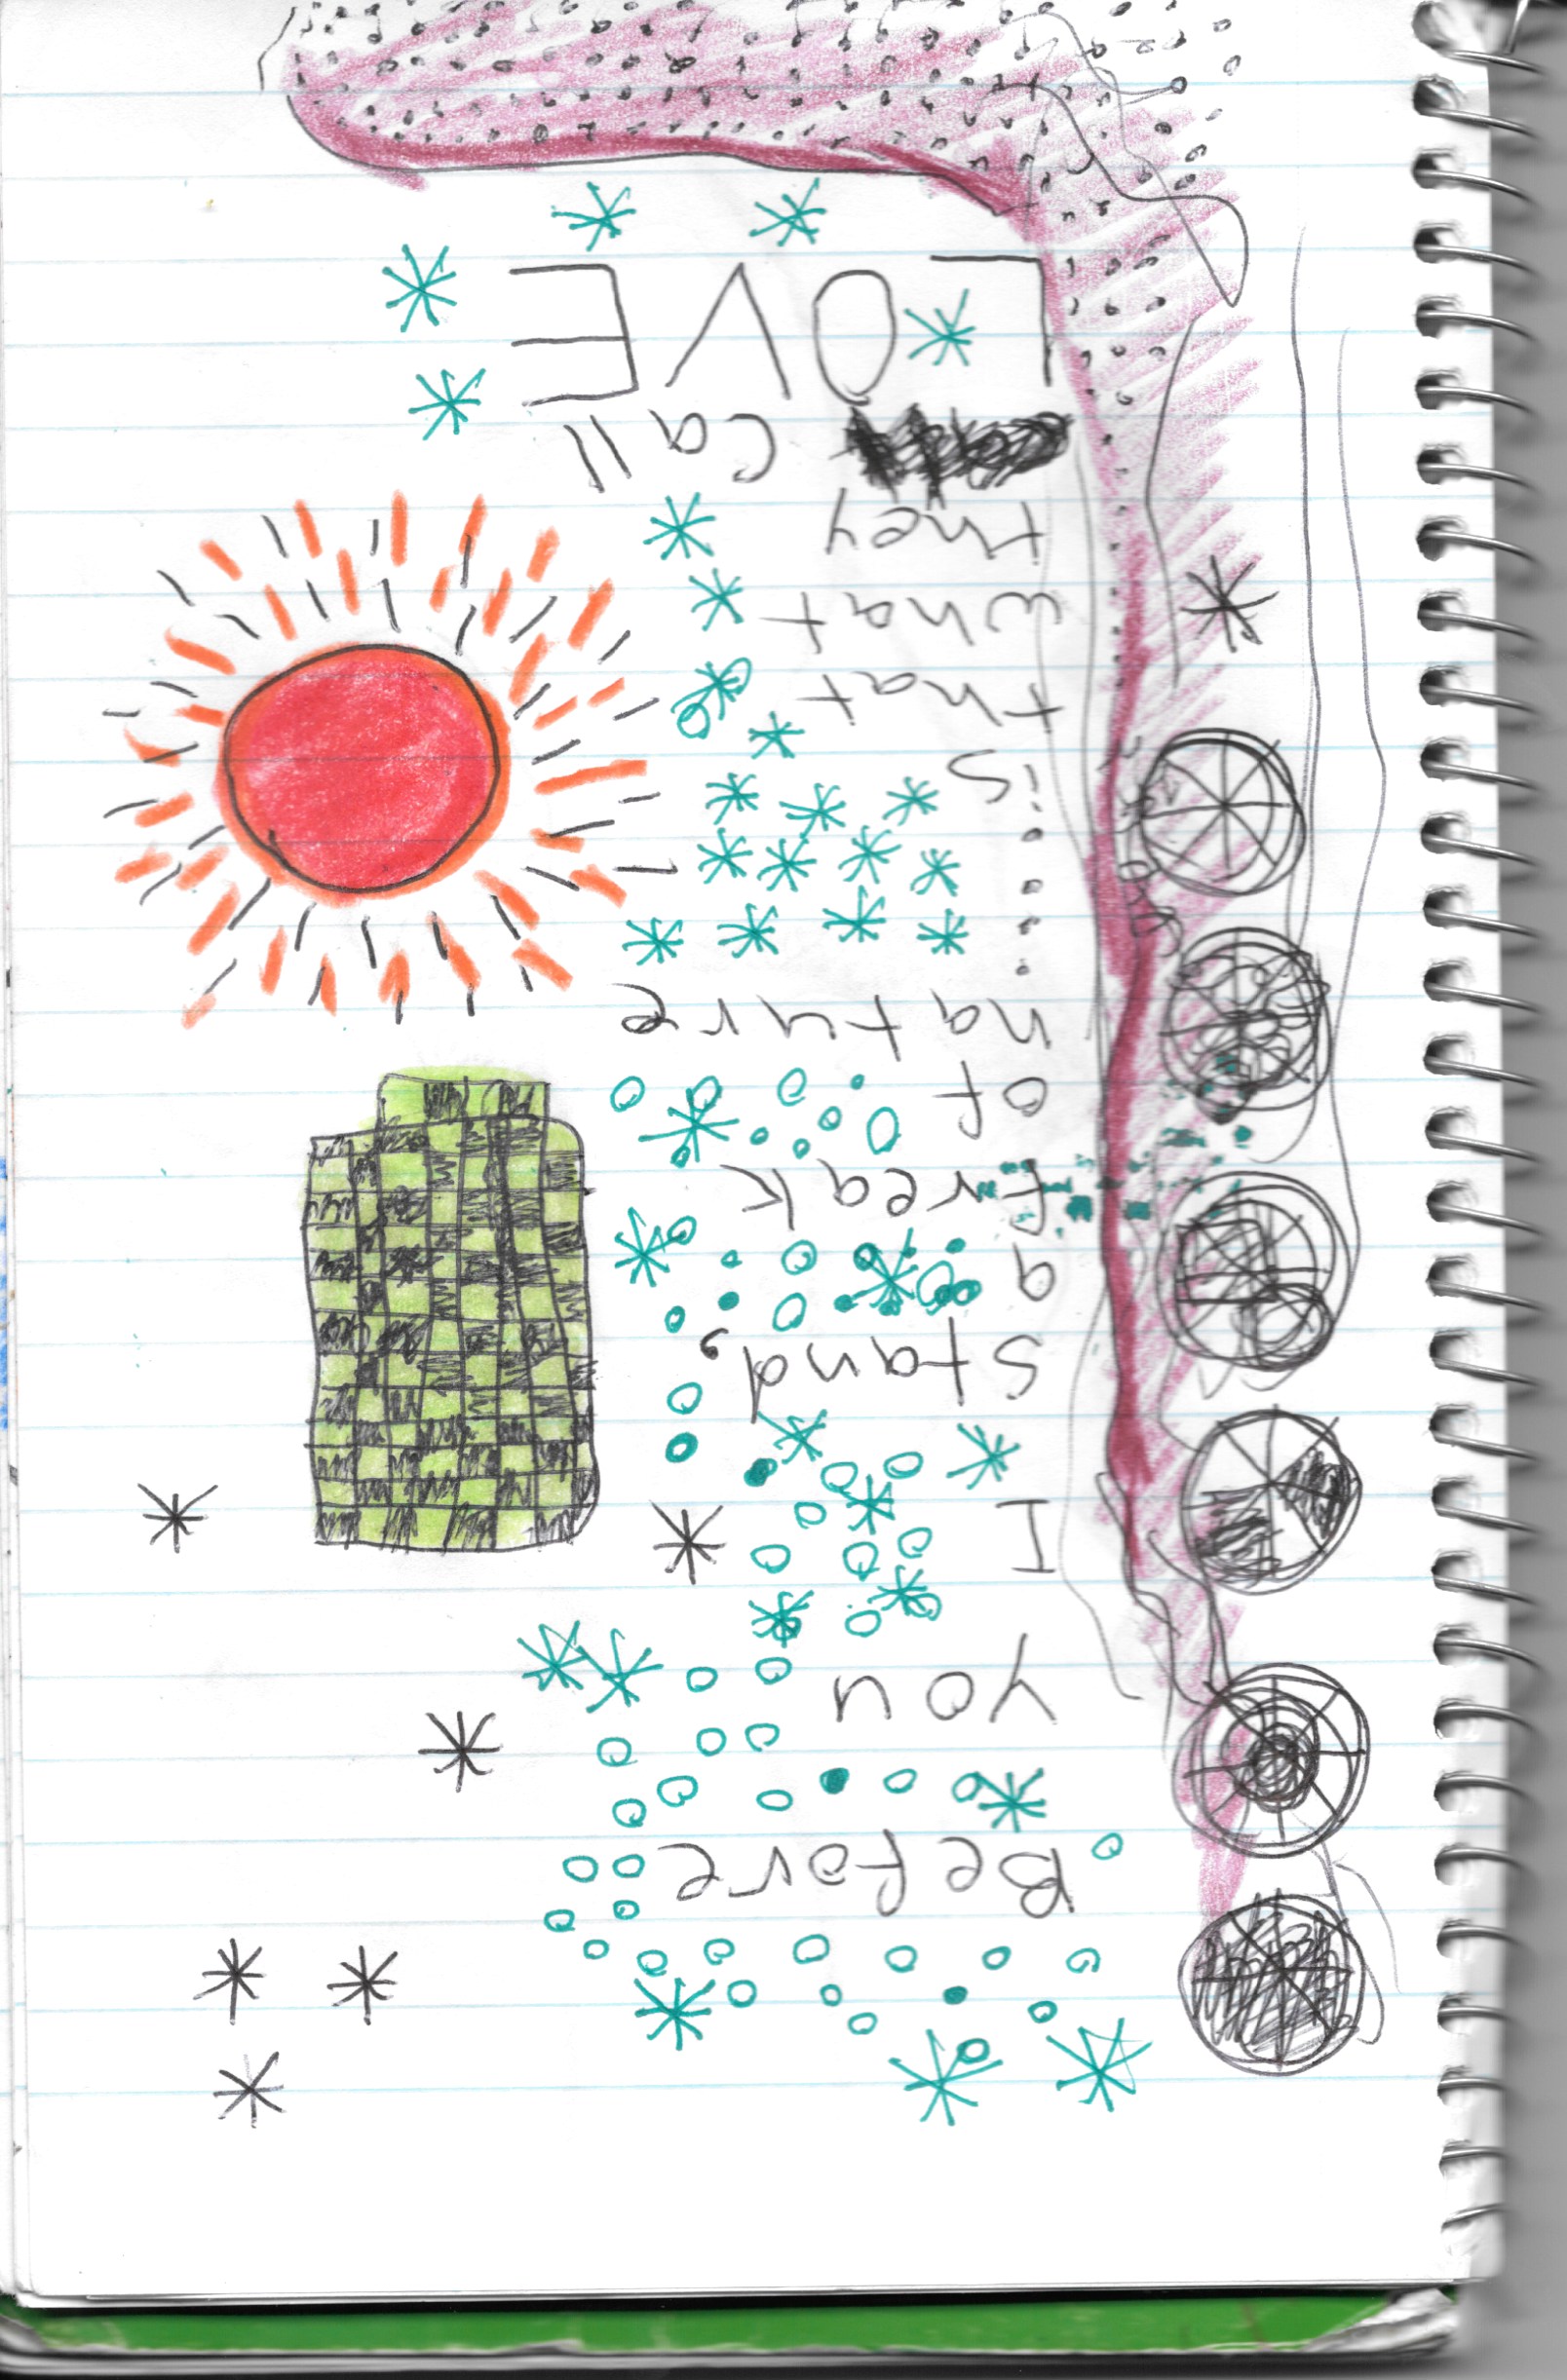 Before
you
I
stand,
a
freak
of
nature
...
is
that
what
they
Call
LOVE